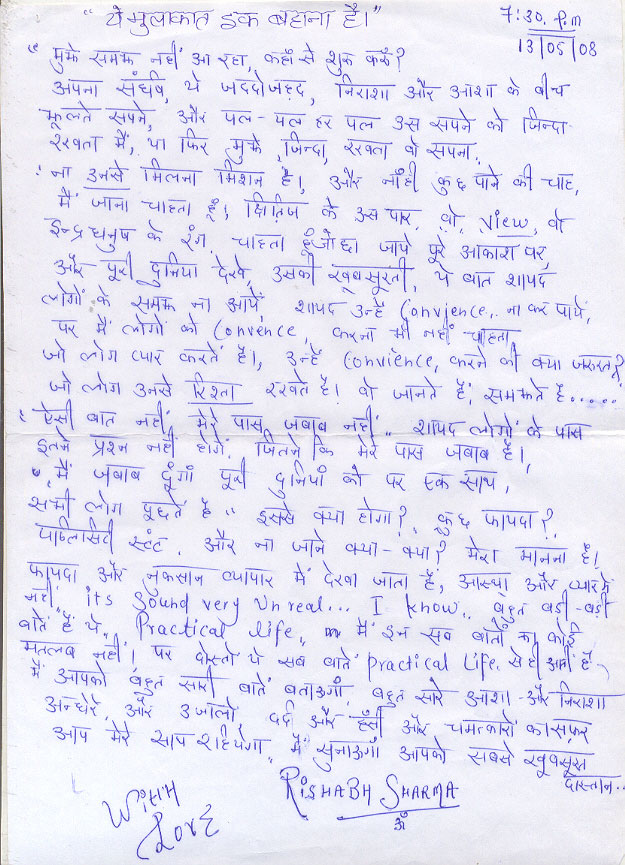 "ये मुलाकात इक बहाना है।"
7:30. P.m
13/05/08
"मुझे समझ नहीं आ रहा, कहाँ से शुरू करूँ?
अपना संघर्ष, ये जद्दोजहद, निराशा और आशा के बीच
झूलते सपने, और पल-पल हर पल उस सपने को जिन्दा
रखता मैं, या फिर मुझे जिन्दा रखता वो सपना.
ना उनसे मिलना मिशन है, और नाँही कुछ पाने की चाह,
मैं जाना चाहता हूँ, क्षितिज के उस पार. वो, view, वो
इन्द्रधनुष के रंग. चाहता हूँ जो छा जाये पूरे आकाश पर,
और पूरी दुनिया देखे, उसकी खूबसूरती, ये बात शायद
लोगों के समझ ना आयें, शायद उन्हें Convience.. ना कर पायें,
पर मैं लोगों को Convence, करना भी नहीं चाहता
जो लोग प्यार करते हैं।, उन्हें Convience, करने की क्या जरूरत?
जो लोग उनसे रिश्ता रखते हैं। वो जानते हैं, समझते हैं.....
ऐसी बात नहीं मेरे पास जवाब नहीं.. शायद लोगों के पास
इतने प्रश्न नहीं होगें, जितने कि मेरे पास जवाब हैं।,
मैं जवाब दूंगाँ पूरी दुनियाँ को पर एक साथ,
सभी लोग पूछतें है.. इससे क्या होगा? कुछ फायदा?,
पब्लिसिटी स्टंट. और ना जाने क्या-क्या? मेरा मानना है।
फायदा और नुकसान व्यापार में देखा जाता है, आस्था और प्यार में
नहीं, its Sound very Unreal... I know.. बहुत बडी-बडी
बातें हैं ये, Practical life, मैं इन सब बातों का कोई
मतलब नहीं। पर दोस्तों ये सब बातें practical Life से ही आती हैं
मैं आपको बहुत सारी बातें बताऊगाँ, बहुत सारे आशा-और निराशा
अन्धेरे, और उजालो, दर्द और हँसी और चमत्कारों का सफ़र
आप मेरे साथ रहियेगा, मैं सुनाऊगाँ आपको सबसे खूबसूरत
दास्तान..
With
Love
RISHABH SHARMA
ॐ